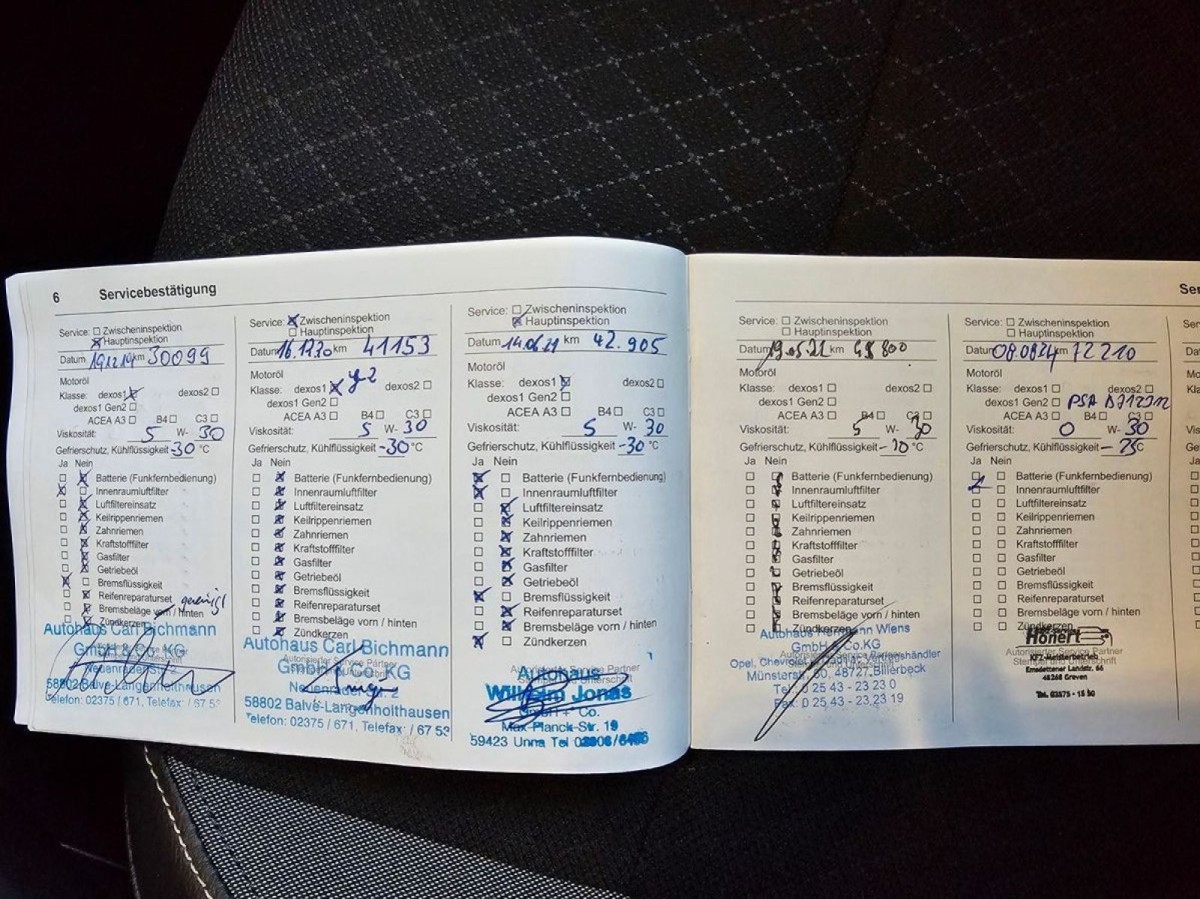 6 Servicebestätigung
Service: Zwischeninspektion
Hauptinspektion
Datum 19.12.19 km 30099
Motoröl
Klasse: dexos1 dexos2
dexos1 Gen2
ACEA A3 B4 C3
Viskosität: 5 W- 30
Gefrierschutz, Kühlflüssigkeit -30 °C
Ja Nein
Batterie (Funkfernbedienung)
Innenraumluftfilter
Luftfiltereinsatz
Keilrippenriemen
Zahnriemen
Kraftstofffilter
Gasfilter
Getriebeöl
Bremsflüssigkeit
Reifenreparaturset
Bremsbeläge vorn / hinten
Zündkerzen
Autohaus Carl Bichmann
GmbH & Co. KG
Neuenrader
58802 Balve-Langenholthausen
Telefon: 02375 / 671, Telefax: / 67 53
Service: Zwischeninspektion
Hauptinspektion
Datum 16.12.20 km 41153
Motoröl
Klasse: dexos1 dexos2
dexos1 Gen2
ACEA A3 B4 C3
Viskosität: 5 W- 30
Gefrierschutz, Kühlflüssigkeit -30 °C
Ja Nein
Batterie (Funkfernbedienung)
Innenraumluftfilter
Luftfiltereinsatz
Keilrippenriemen
Zahnriemen
Kraftstofffilter
Gasfilter
Getriebeöl
Bremsflüssigkeit
Reifenreparaturset
Bremsbeläge vorn / hinten
Zündkerzen
Autohaus Carl Bichmann
Autorisierter Service Partner
GmbH & Co. KG
58802 Balve-Langenholthausen
Telefon: 02375 / 671, Telefax: / 67 53
Service: Zwischeninspektion
Hauptinspektion
Datum 14.06.21 km 42.905
Motoröl
Klasse: dexos1 dexos2
dexos1 Gen2
ACEA A3 B4 C3
Viskosität: 5 W- 30
Gefrierschutz, Kühlflüssigkeit -30 °C
Ja Nein
Batterie (Funkfernbedienung)
Innenraumluftfilter
Luftfiltereinsatz
Keilrippenriemen
Zahnriemen
Kraftstofffilter
Gasfilter
Getriebeöl
Bremsflüssigkeit
Reifenreparaturset
Bremsbeläge vorn / hinten
Zündkerzen
Autorisierter Service Partner
Autohaus
Wilhelm Jonas
GmbH + Co.
Max-Planck-Str. 19
59423 Unna Tel
Ser
Service: Zwischeninspektion
Hauptinspektion
Datum km
Motoröl
Klasse: dexos1 dexos2
dexos1 Gen2
ACEA A3 B4 C3
Viskosität: 5 W- 30
Gefrierschutz, Kühlflüssigkeit °C
Ja Nein
Batterie (Funkfernbedienung)
Innenraumluftfilter
Luftfiltereinsatz
Keilrippenriemen
Zahnriemen
Kraftstofffilter
Gasfilter
Getriebeöl
Bremsflüssigkeit
Reifenreparaturset
Bremsbeläge vorn / hinten
Zündkerzen
Autohaus Hermann Wiens
GmbH & Co.KG
Opel, Chevrolet Vertragshändler
Münsterstr. 30, 48727 Billerbeck
Tel. 0 25 43 - 23 23 0
Fax. 0 25 43 - 23 23 19
Service: Zwischeninspektion
Hauptinspektion
Datum 08.08.24 km 72210
Motoröl
Klasse: dexos1 dexos2
dexos1 Gen2 PSA
ACEA A3 B4 C3
Viskosität: 0 W- 30
Gefrierschutz, Kühlflüssigkeit -25 °C
Ja Nein
Batterie (Funkfernbedienung)
Innenraumluftfilter
Luftfiltereinsatz
Keilrippenriemen
Zahnriemen
Kraftstofffilter
Gasfilter
Getriebeöl
Bremsflüssigkeit
Reifenreparaturset
Bremsbeläge vorn / hinten
Zündkerzen
Hönert
Autorisierter Service Partner
Stempel und Unterschrift
KFZ-Meisterbetrieb
Emsdettener Landstr. 66
48268 Greven